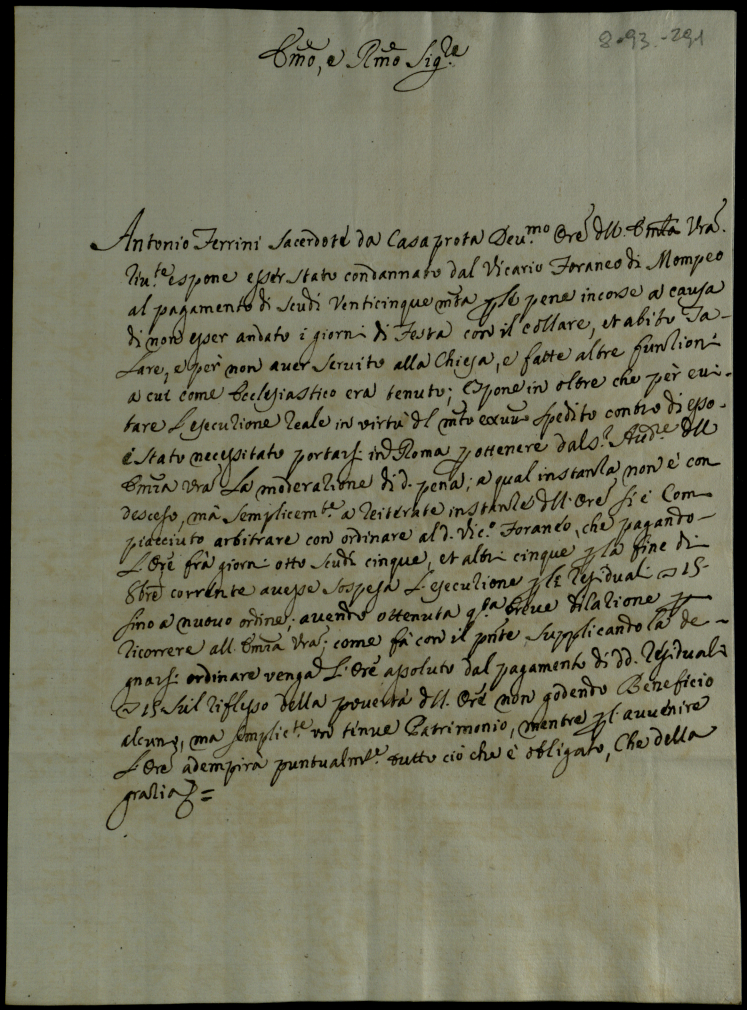 8.93.-291
Emo, e Rmo Sig.re
Antonio Ferrini Sacerdote da Casaprota Deu.mo Ore dll Emza Vra.
Riu.te espone esser stato condannato dal Vicario Foraneo di Mompeo
al pagamento di Scudi Venticinque mta ple pene incorse a causa
di non esser andato i giorni di Festa con il collare, et abito Ta-
lare, e per non aver servito alla Chiesa, e fatte altre funzioni
a cui come Ecclesiastico era tenuto; Espone in oltre che per eui-
tare l'esecuzione reale in virtù dl mto spedito contro di esso
è stato necessitato portarsi in Roma p ottenere dal S.r Aud.re dll
Emza Vra La moderazione di d. pena; a qual instanza non è con
desceso, mà semplicem.te a reiterate instanze dll. Ore si è Com
piaciuto arbitrare con ordinare al d. Vic.o Foraneo, che pagando
L'Ore frà giorni otto scudi cinque, et altri cinque p la fine di
8bre corrente avesse sospesa l'esecuzione p le residuali 15-
sino a nuovo ordine; avendo ottenuta qsta breve dilazione p
ricorrere all. Emza Vra; come fà con il pnte, supplicandola de-
gnarsi ordinare venga L'Ore assoluto dal pagamento di dd. residuali
15 sul riflesso della povertà dll. Ore non godendo Beneficio
alcuno, ma semplic.te un tenue Patrimonio, mentre pl. avvenire
L'Ore adempirà puntualm.te tutto ciò che è obligato, Che della
grazia =